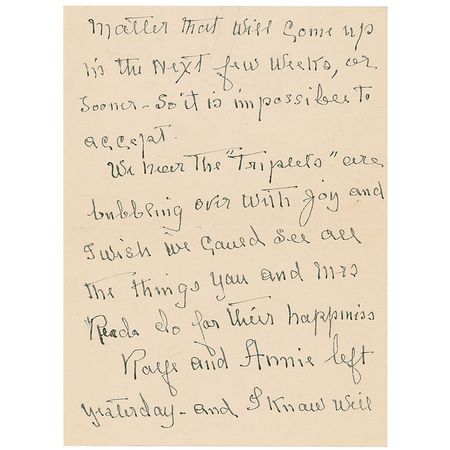 Matter that will come up
in the next few weeks, or
sooner - so it is impossible to
accept.
We hear the "Triplets" are
bubbling over with joy and
I wish we could see all
the things you and Mrs
Reads do for their happiness
and Annie left
yesterday - and I know will